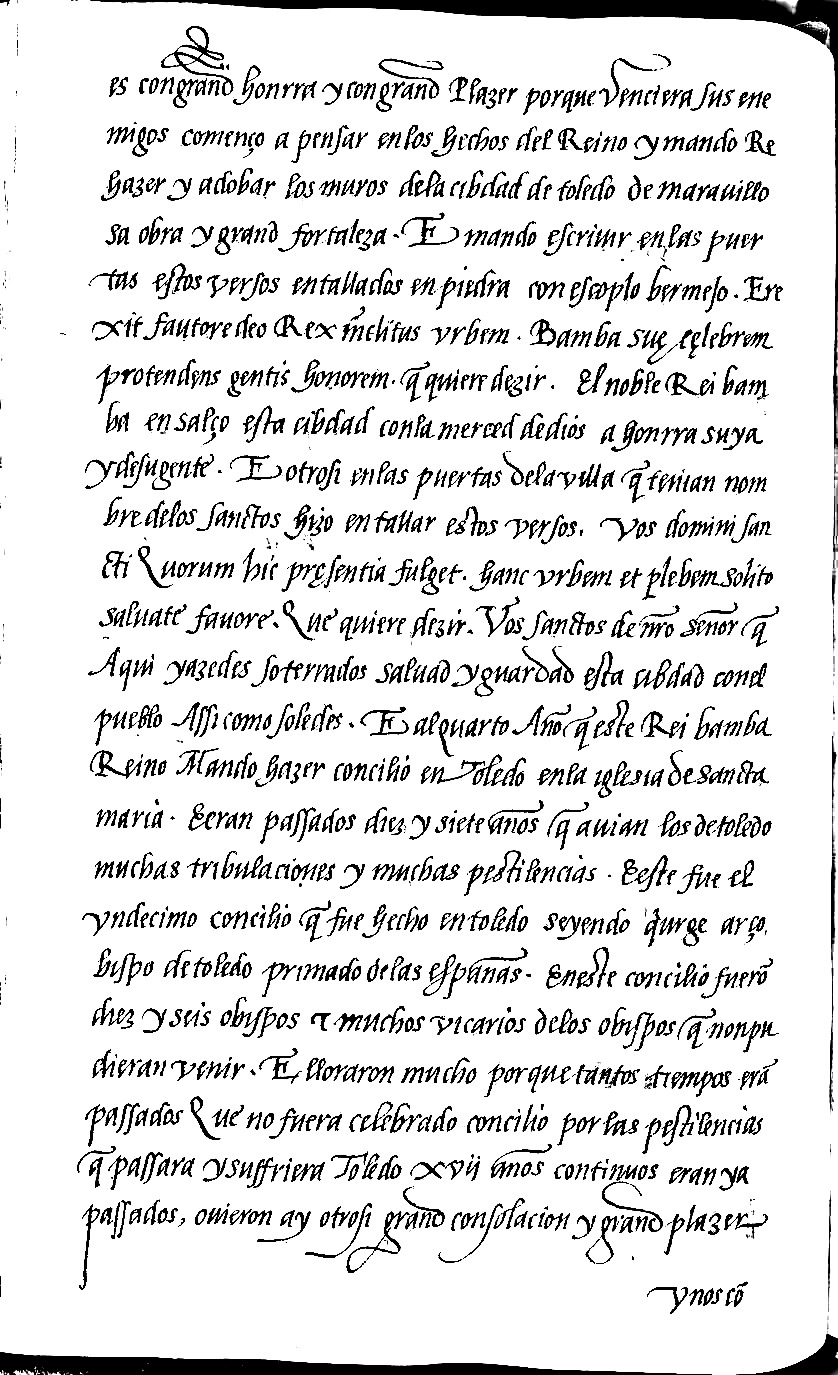 es con grand honrra y con grand Plazer porque Venciera sus ene
migos começo a pensar en los hechos del Reino y mando Re
hazer y adobar los muros dela cibdad de toledo de maravillo
sa obra y grand fortaleza. E mando escriuir en las puer
tas estos versos entallados en piedra con escoplo bermejo. Ere
xit fautore deo Rex inclitus vrbem. Bamba suę cęlebrem
protendens gentis honorem. q̃ quiere dezir. El noble Rei bam
ba ensalço esta cibdad con la merced de dios a honrra suya
y de su gente. E otrosi en las puertas dela villa q̃ tenian nom
bre delos sanctos hizo entallar estos versos. Vos domini san
cti Quorum hic pręsentia fulget. hanc vrbem et plebem solito
saluate fauore. Que quiere dezir. Vos sanctos de nr̃o señor q̃
Aqui yazedes soterrados saluad y guardad esta cibdad con el
pueblo Assi como soledes. E al quarto Año q̃ este Rei bamba
Reino Mando hazer concilio en Toledo en la iglesia de sancta
maria. E eran passados diez y siete años q̃ auian los de toledo
muchas tribulaciones y muchas pestilencias. E este fue el
vndecimo concilio q̃ fue hecho en toledo seyendo q̃urge arço
bispo de toledo primado de las españas. En este concilio fuerõ
diez y seis obispos τ muchos vicarios delos obispos q̃ non pu
dieran venir. E lloraron mucho porque tantos tiempos erã
passados Que no fuera celebrado concilio por las pestilencias
q̃ passara y suffriera Toledo xvij años continuos eran ya
passados, ouieron ay otrosi grand consolacion y grand plazer
y nos cõ